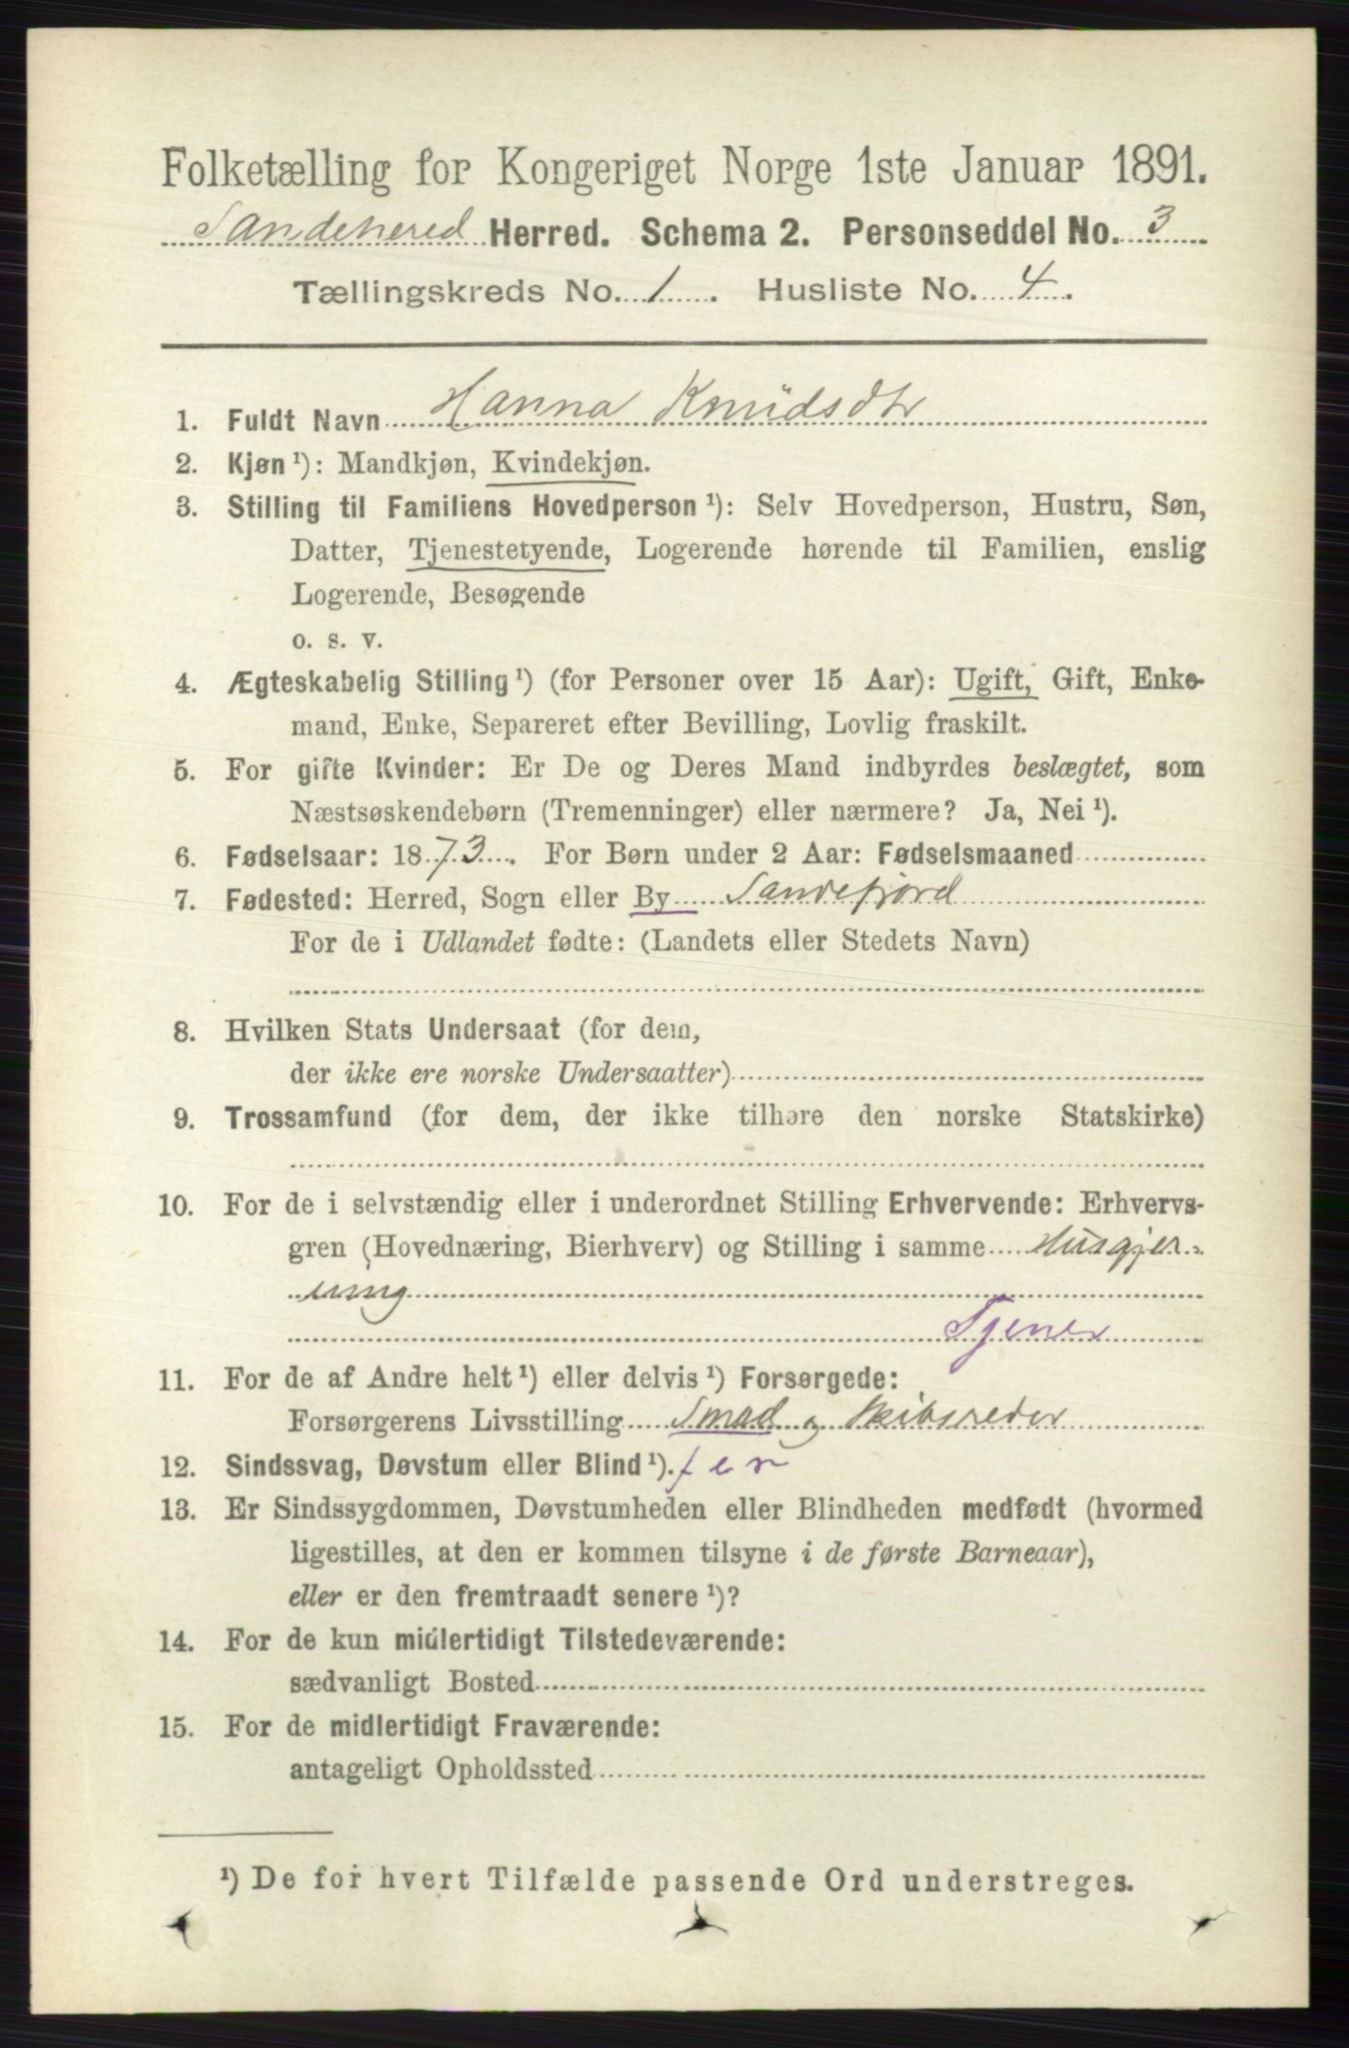 Folketælling for Kongeriget Norge 1ste Januar 1891.
Sandehered Herred. Schema 2. Personseddel No. 3
Tællingskreds No. 1. Husliste No. 4.
1. Fuldt Navn Hanna Knüdsdtr
2. Kjøn ¹): Mandkjøn, Kvindekjøn.
3. Stilling til Familiens Hovedperson ¹): Selv Hovedperson, Hustru, Søn,
Datter, Tjenestetyende, Logerende hørende til Familien, enslig
Logerende, Besøgende
o. s. v.
4. Ægteskabelig Stilling ¹) (for Personer over 15 Aar): Ugift, Gift, Enke-
mand, Enke, Separeret efter Bevilling, Lovlig fraskilt.
5. For gifte Kvinder: Er De og Deres Mand indbyrdes beslægtet, som
Næstsøskendebørn (Tremenninger) eller nærmere? Ja, Nei ¹).
6. Fødselsaar: 1873. For Børn under 2 Aar: Fødselsmaaned
7. Fødested: Herred, Sogn eller By Sandefjord
For de i Udlandet fødte: (Landets eller Stedets Navn)
8. Hvilken Stats Undersaat (for dem,
der ikke ere norske Undersaatter)
9. Trossamfund (for dem, der ikke tilhøre den norske Statskirke)
10. For de i selvstændig eller i underordnet Stilling Erhvervende: Erhvervs-
gren (Hovednæring, Bierhverv) og Stilling i samme Husgjer-
ning
Tjener
11. For de af Andre helt ¹) eller delvis ¹) Forsørgede:
Forsørgerens Livsstilling Smed og Skibsreder
12. Sindssvag, Døvstum eller Blind ¹).
13. Er Sindssygdommen, Døvstumheden eller Blindheden medfødt (hvormed
ligestilles, at den er kommen tilsyne i de første Barneaar),
eller er den fremtraadt senere ¹)?
14. For de kun midlertidigt Tilstedeværende:
sædvanligt Bosted
15. For de midlertidigt Fraværende:
antageligt Opholdssted
¹) De for hvert Tilfælde passende Ord understreges.